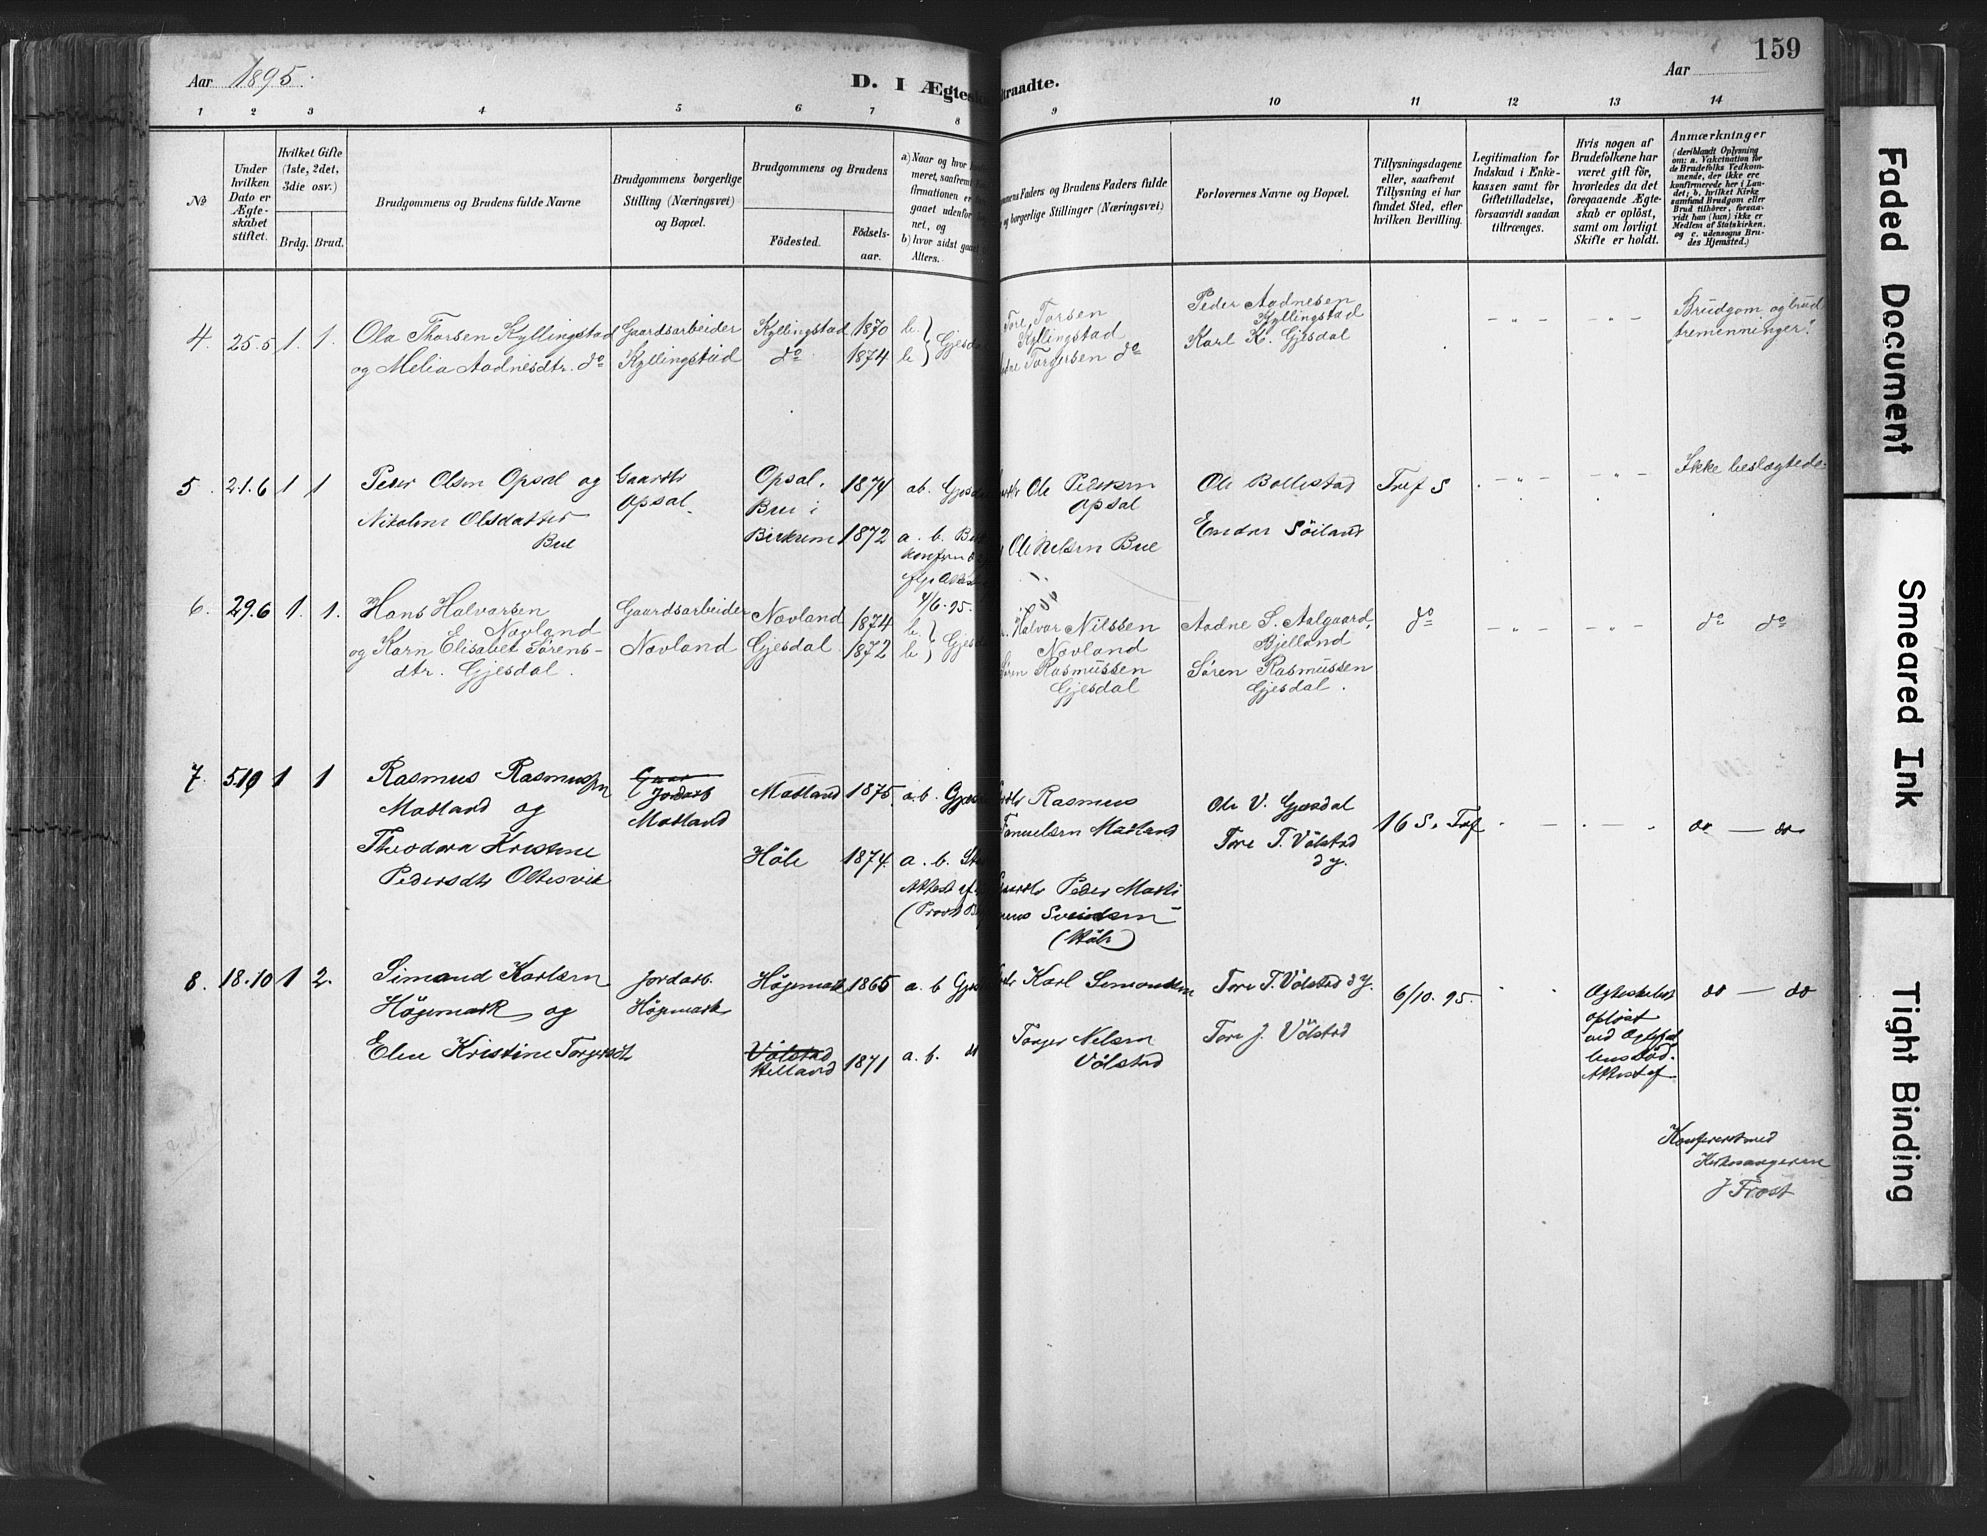 Aar 1895.
D. I Ægtes
traadte.
Aar
159
1 2 3 4 5 6 7 8 9 10 11 12 13 14
No
Under hvilken Dato er Ægteskabet stiftet.
Hvilket Gifte (1ste, 2det, 3die osv.)
Brdg. Brud.
Brudgommens og Brudens fulde Navne
Brudgommens borgerlige Stilling (Næringsvei) og Bopæl.
Brudgommens og Brudens
Födested.
Födsels-
aar.
a) Naar og hvor
meret, saafremt
firmationen er
gaaet udenfor
net, og
b) hvor sidst gaaet
Alters.
mmens Faders og Brudens Faders fulde
og borgerlige Stillinger (Næringsvei)
Forlovernes Navne og Bopæl.
Tillysningsdagene
eller, saafremt
Tillysning ei har
fundet Sted, efter
hvilken Bevilling.
Legitimation for
Indskud i Enke-
kassen samt for
Giftetilladelse,
forsaavidt saadan
tiltrænges.
Hvis nogen af
Brudefolkene har
været gift för,
hvorledes da det
foregaaende Ægte-
skab er oplöst,
samt om lovligt
Skifte er holdt.
Anmærkninger
(deriblandt Oplysning
om: a. Vakcination for
de Brudefolks Vedkom-
mende, der ikke ere
konfirmerede her i Lan-
det; b. hvilket Kirke
samfund Brudgom eller
Brud tilhörer, forsaa-
vidt han (hun) ikke er
Medlem af Statskirken.
og c. udensogns Bru-
des Hjemsted.)
4. 25.5 1. 1.
Ola Thorsen Kyllingstad
og Melia Aadnesdtr. do
Gaardsarbeider
Kyllingstad
Kyllingstad 1870
do 1874
b.
b.
Gjesd
Tore Torsen
Kyllingstad
Torgersen do
Peder Aadnesen
Kyllingstad
Karl K. Gjesdal
- " - - " -
Brudgom og brud
tremenninger.
5 21.6 1 1
Peder Olsen Opsal og
Nikoline Olsdatter
Bue
Gaardbr
Opsal.
Opsal. 1874
Bue i
Birkrem 1872
ab. Gjesd
a. b. B
4/6.95.
Ole Pedersen
Opsal
Ole Nelsen Bue
Ole Bollestad
Einar Söiland
Tref S
- " - - " -
Ikke beslægtede.
6. 29.6 1. 1.
Hans Halvarsen
Novland
og Karn Elisabet Sørens-
dtr. Gjesdal.
Gaardsarbeider
Novland
Novland 1874
Gjesdal 1872
b.
b.
Gjesd
Halvor Nilssen
Novland
Søren Rasmussen
Gjesdal
Aadne S. Aalgaard,
Bjelland
Søren Rasmussen
Gjesdal.
do
- " - - " -
do do
7. 5.10 1 1
Rasmus Rasmussen
Madland og
Theodora Kristine
Pedersdtr Oltesvik
Jordarb
Madland
Madland 1875
Höle 1874
a.b. Gjesd
a. b. St
Attest
(Provst
Rasmus
Madland
Peder Mathi
Svendsen
(Höle)
Ole V. Gjesdal
Tore T. Völstad
d y.
16 S. Tref
- - - -
do — do
8. 18.10 1 2.
Simond Karlsen
Högemark og
Elen Kristine Torgersdt
Jordarb.
Högemark
Högemark 1865
Völstad
Helland 1871
a. b Gjesd
a. b. do
Karl Simonsen
Torger Nelsen
Völstad
Tore T. Völstad d y.
Tore J. Völstad
6/10. 95.
Ægteskabet
oplöst
ved
Död.
Attest af
do — do
Konfereret med
Kirkesangeren
J Frost
Faded Document
Smeared Ink
Tight Binding